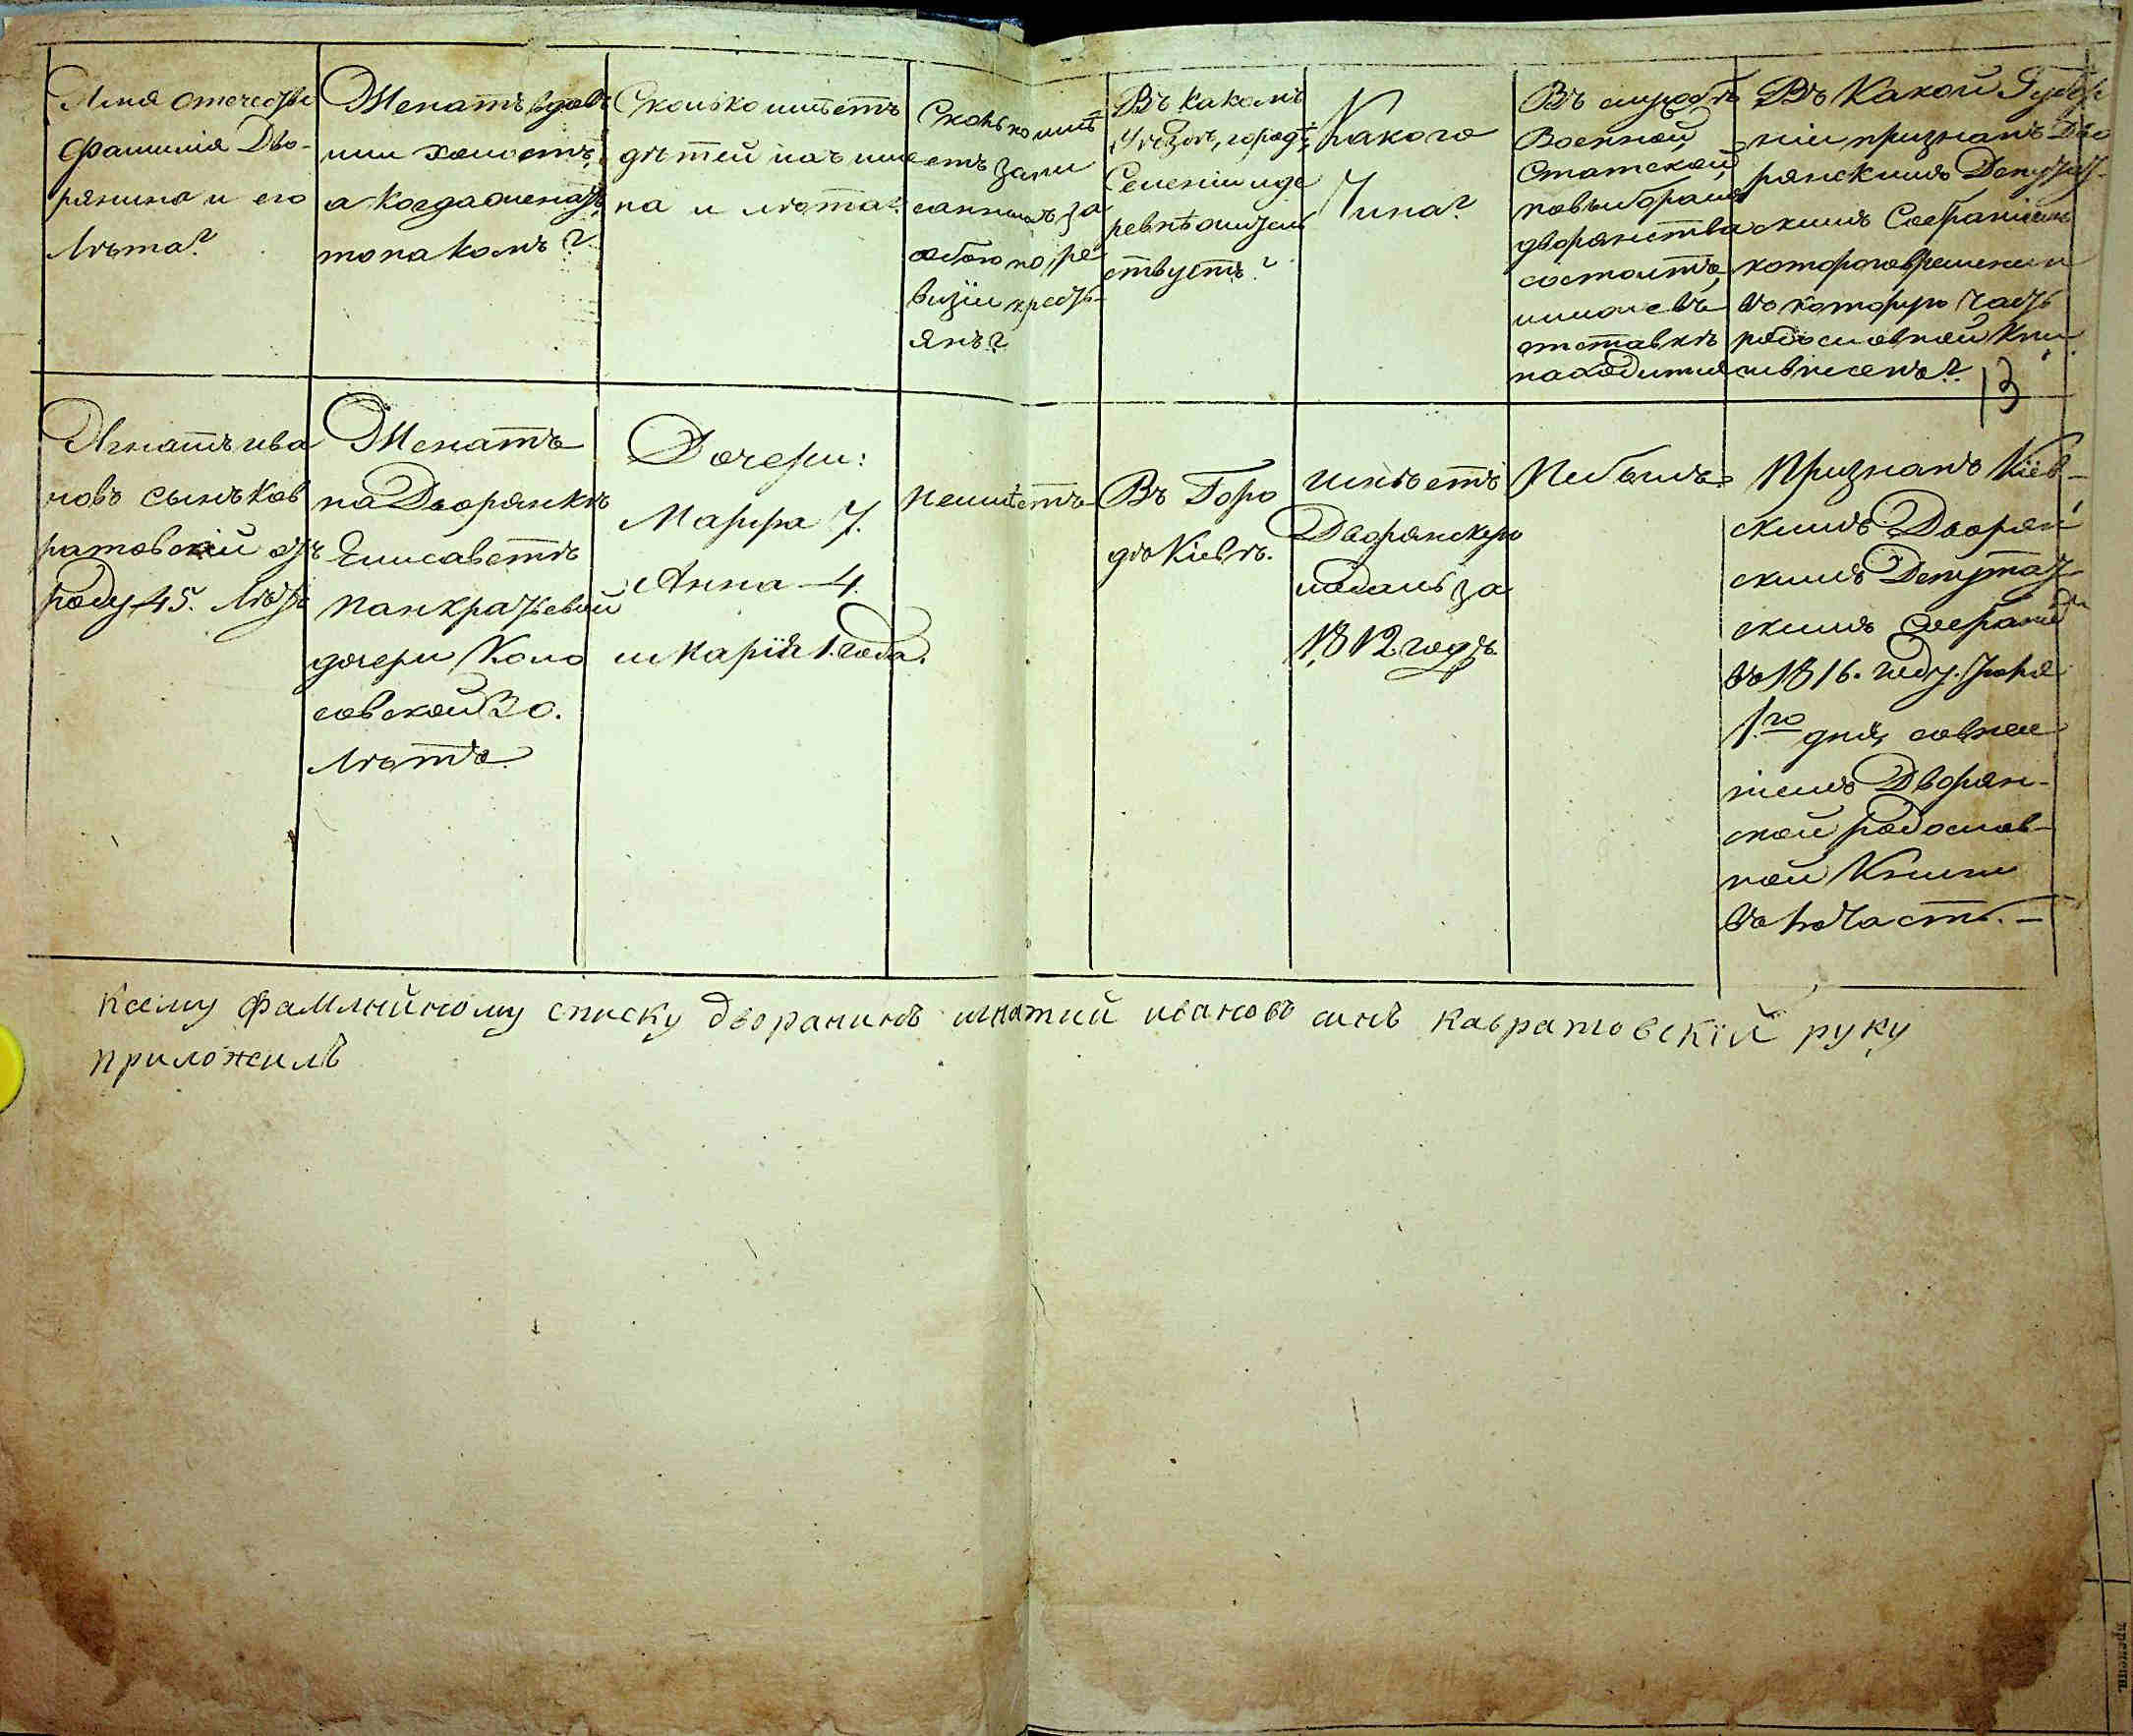 Имя отечество
фамилія Дво-
рянина и его
лѣта?
Женатъ вдовъ
или холостъ,
а когда женатъ,
то на комъ?
Сколько имѣетъ
дѣтей ихъ име
на и лѣта?
Сколько имѣ
етъ запи
санныхъ за
собою по ре
визіи кресть-
янъ?
Въ какомъ
уѣздѣ, городѣ,
селеніи и де
ревнѣ жител
ствуетъ?
Какого
Чина?
Въ службѣ
Военной,
Статской,
по выборамъ
дворянства
состоитъ,
или въ
отставкѣ
находится
Въ Какой Губер
ніи признанъ Дво
рянскимъ Депутат-
скимъ Собраніемъ
котораго времени и
въ которую часть
родословной Кни
ги внесенъ?
13
Игнатъ ива
новъ сынъ Кав
ратовскій отъ
роду 45. лѣтъ
Женатъ
на Дворянкѣ
Елисаветѣ
Панкратьевой
дочери Коло
совской 30.
лѣтъ.
Дочери:
Марфа 7.
Анна – 4.
и Марія 1. года.
Неимѣетъ
Въ Горо
дѣ Кіевѣ.
имѣетъ
Дворянскую
медаль за
1812 годъ
Небылъ
Признанъ Кіев-
скимъ Дворян
скимъ Депутат
скимъ Собраніем
въ 1816. году.
1.го дня, со внесе
ніемъ Дворян-
ской родослов-
ной Книги
въ 1ю Часть. –
Ксему фамлийному списку дворанинъ игнатий ивановъ синъ кавратовскій руку
приложилъ